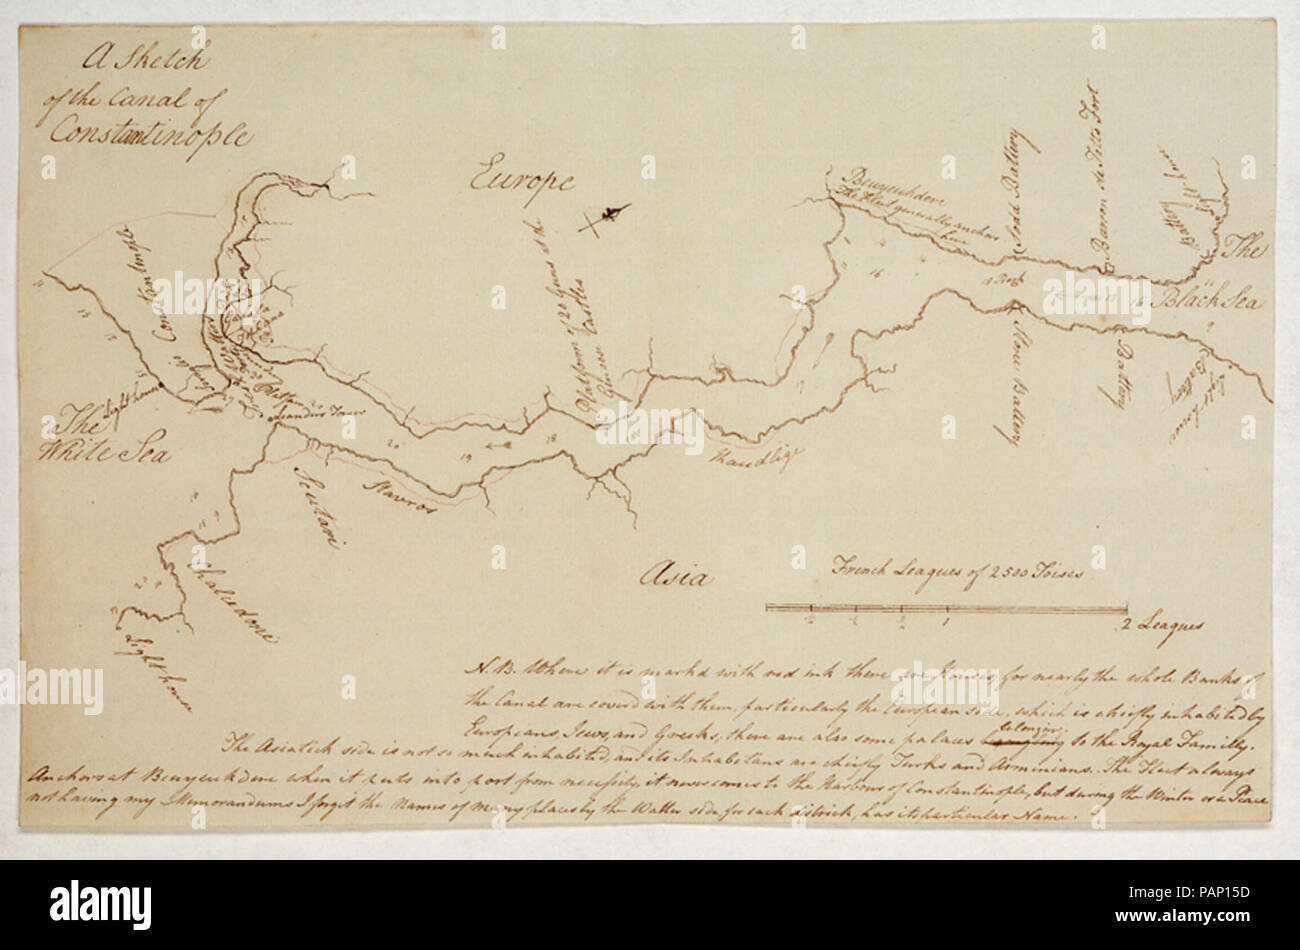 A Sketch
of the Canal of
Constantinople
Europe
Constantinople
The
White Sea
Lighthouse
Leandurs Tower
Scutari
Staveros
Chalcedone
Lighthouse
Platform of 20 Guns
Castles
Kandlige
Beuyeukdere
The Fleet generally anchors
here
Battery
Baron de Totts Fort
Battery
Light house
The
Black Sea
Battery
Battery
Light house
Battery
Asia
French Leagues of 2500 Toises
1
2 Leagues
N.B. Where it is markd with red ink there are Houses, for nearly the whole Banks of
the Canal are coverd with them, particularly the European side, which is chiefly inhabited by
Europians, Jews, and Greeks, there are also some palaces belonging to the Royal Familly.
The Asiatick side is not so much inhabited, and its Inhabetans are chiefly Turks and Arminians. The Fleet always
Anchors at Beuyeukdere when it puts into port from necessity, it never comes to the Harbour of Constantinople, but during the Winter or a Peace
not having my Memorandums I forgit the Names of many places by the Watter side for each district, has its particular Name.
alamy
Image ID: PAP15D
www.alamy.com